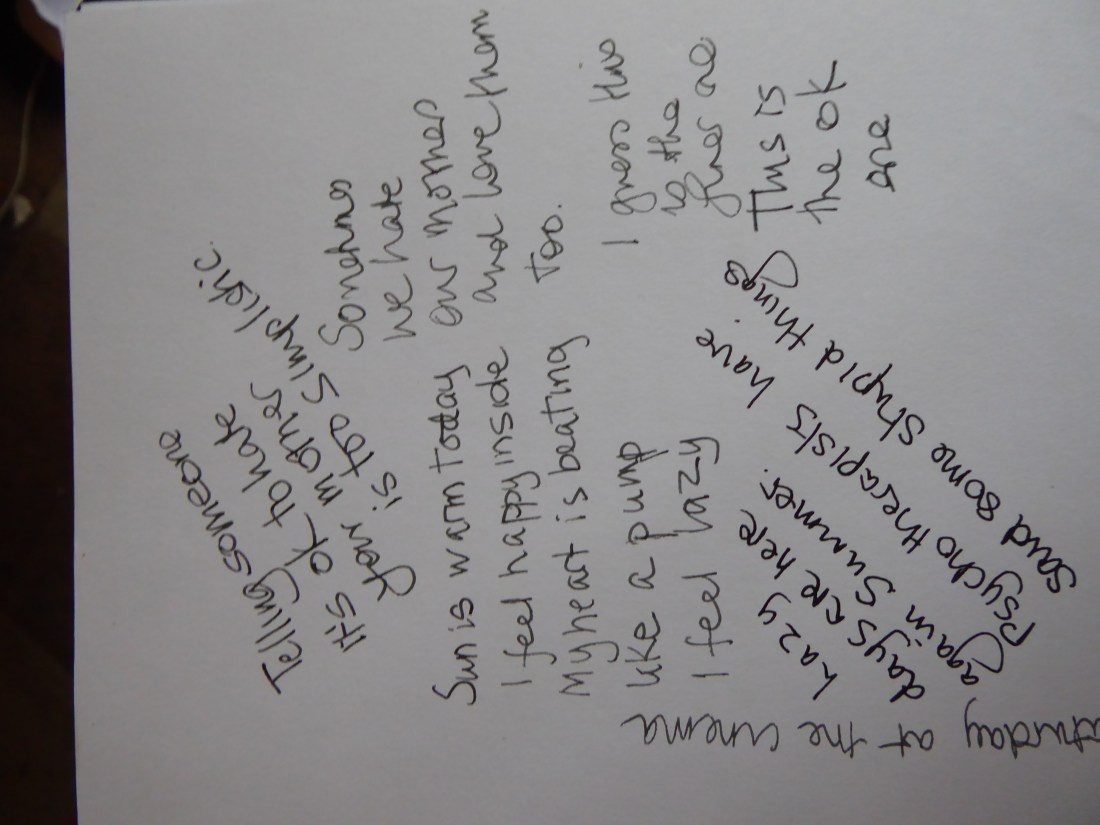 Telling someone
It's ok to hate
your mother
is too simplistic.
Sometimes
we hate
our mother
and love them
too.
Sun is warm Today
I feel happy inside
My heart is beating
like a pump
I feel lazy
I guess this
is the
This is
the ok
one
hazy
days are here
again Summer.
Psycho therapists have
said some stupid things
aturday at the cinema